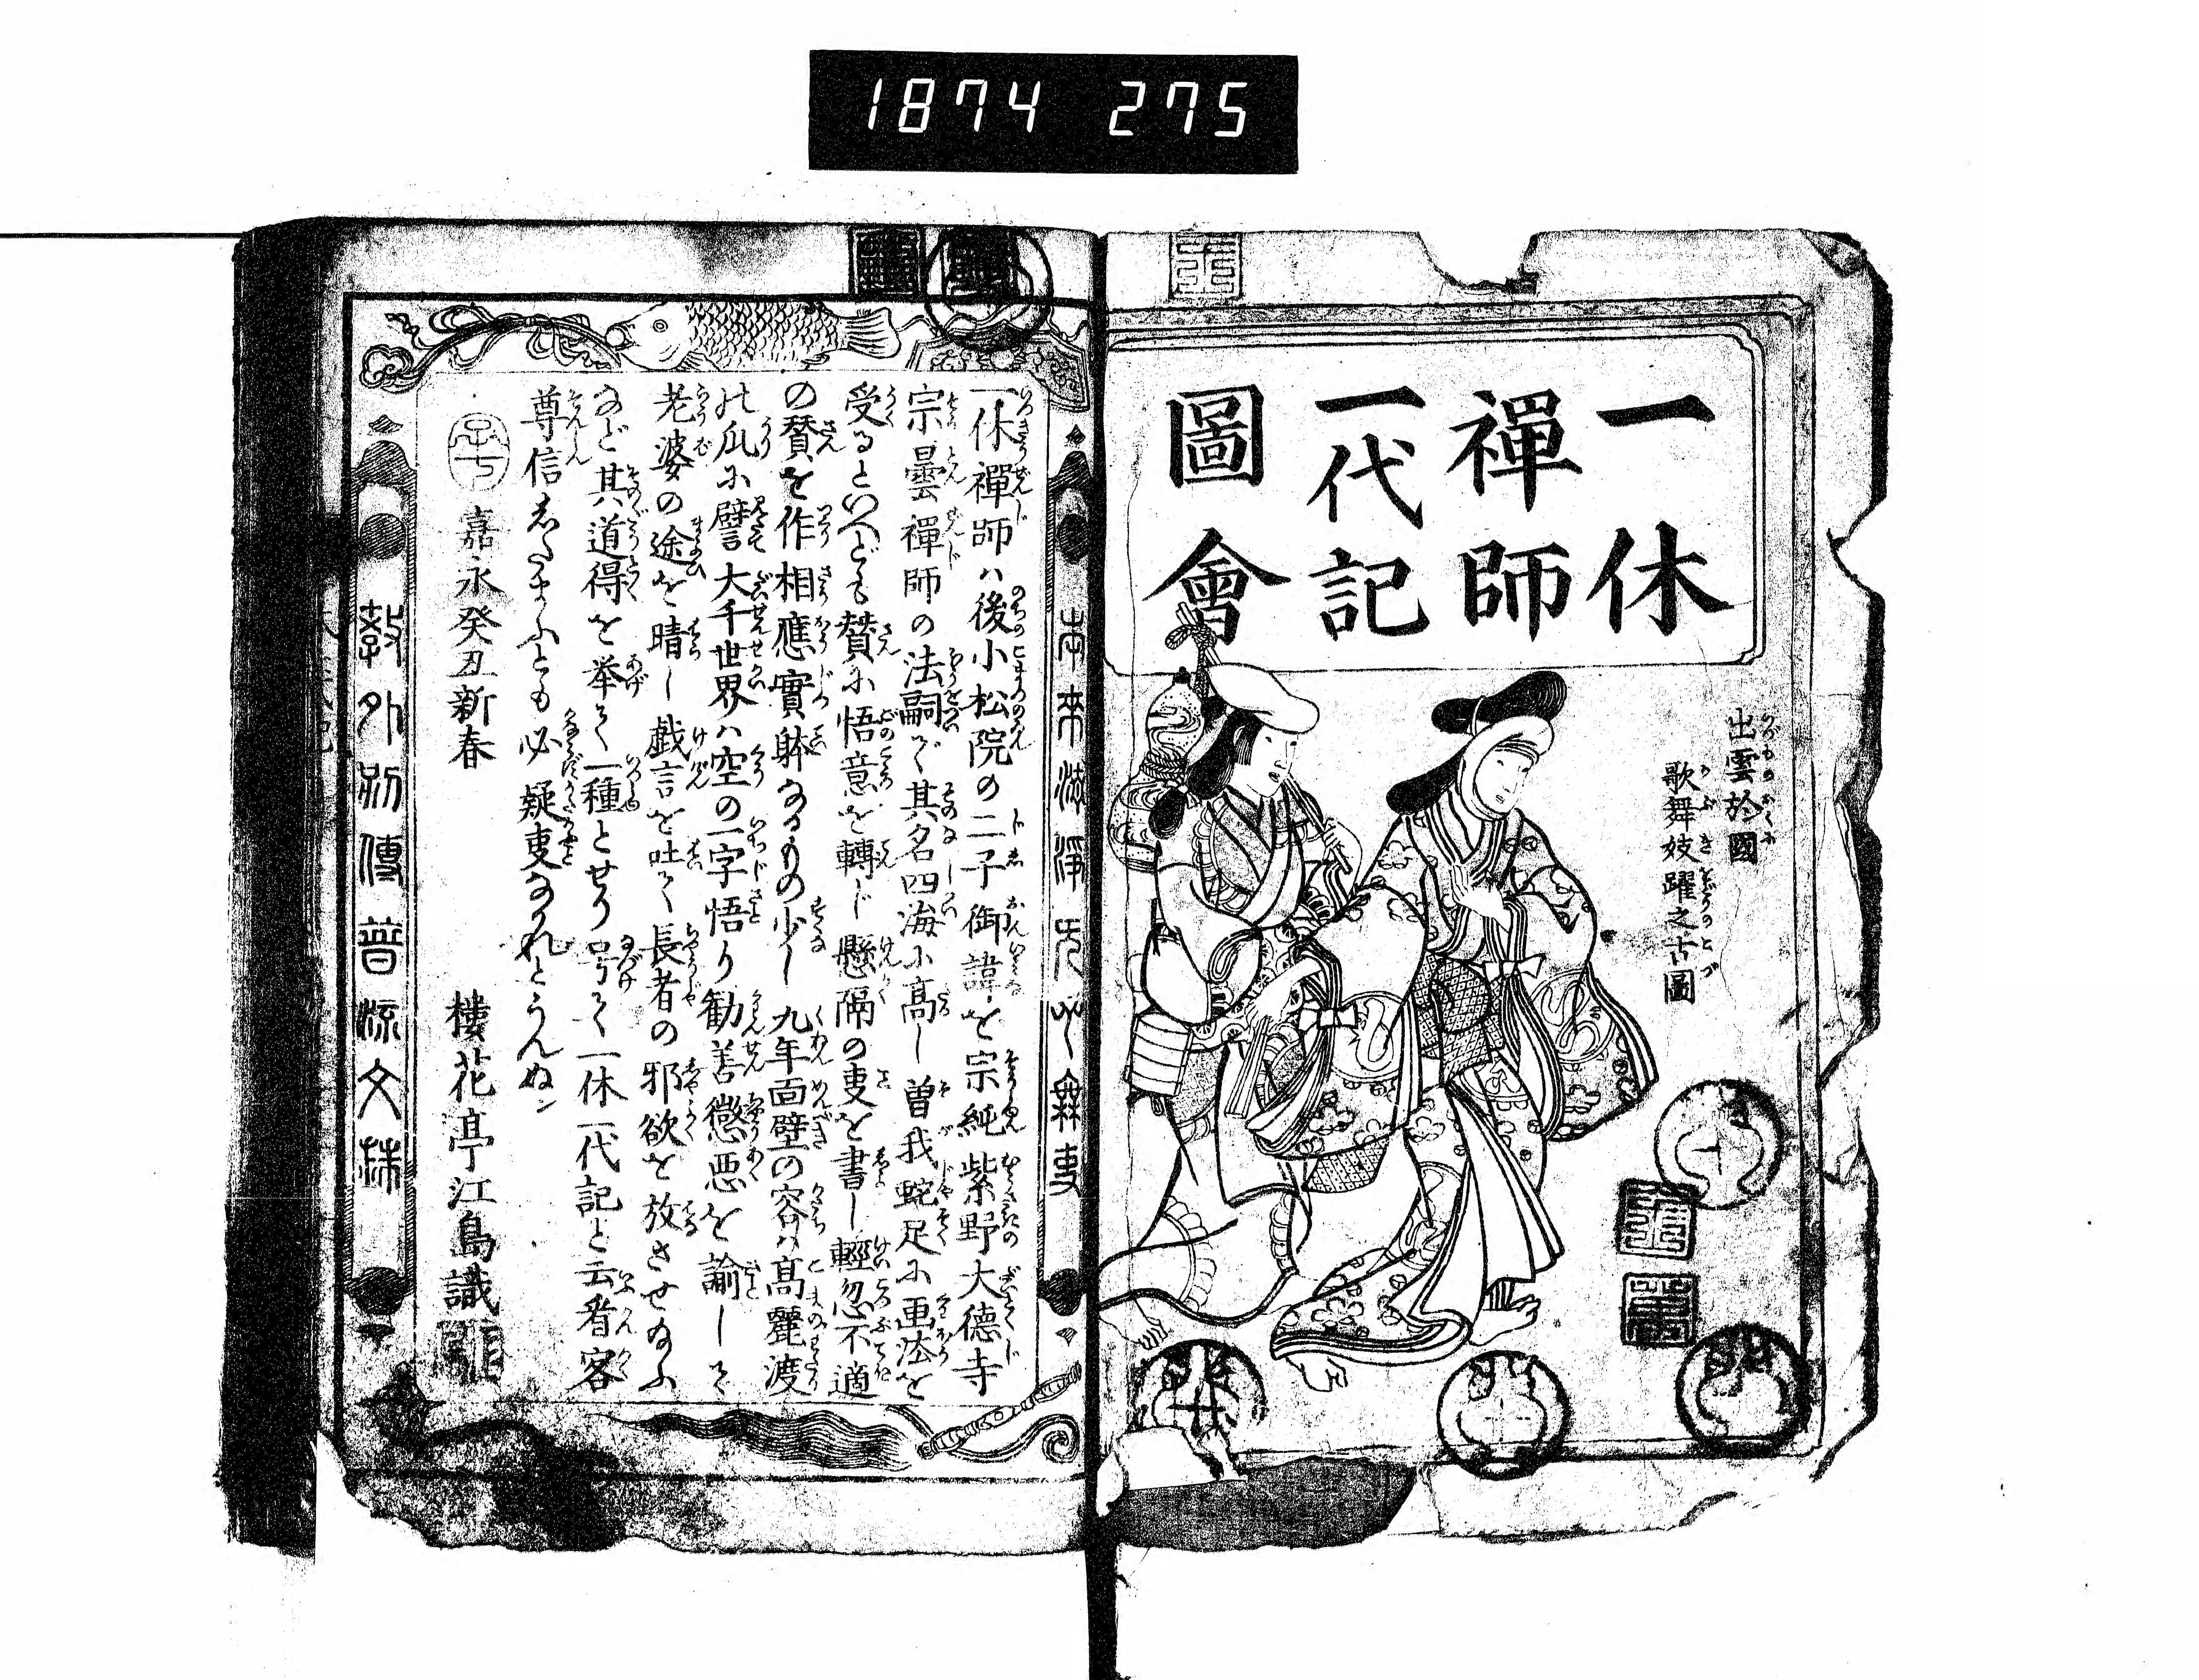 1874 275
一休
禪師
一代記
圖會
出雲於國
歌舞妓躍之古圖
本来清浄元心無事
一休禪師ハ後小松院の二子御諱を宗純紫野大德寺
宗曇禪師の法嗣で其名四海に高し曽我蛇足に画法を
受るといへども賛に悟意を轉じ懸隔の叓を書し輕忽不適
の賛を作相應實躰なるもの少し九年面壁の容ハ高麗渡
の瓜に譬大千世界ハ空の一字悟り勧善懲悪を諭して
老婆の途を晴し戯言を吐て長者の邪欲を放させ給ふ
など其道得を挙て一種とせり号て一休一代記と云看客
尊信したまふとも必疑叓なかれとうんぬン
嘉永癸丑新春
棲花亭江島識
教外別傳普流文林